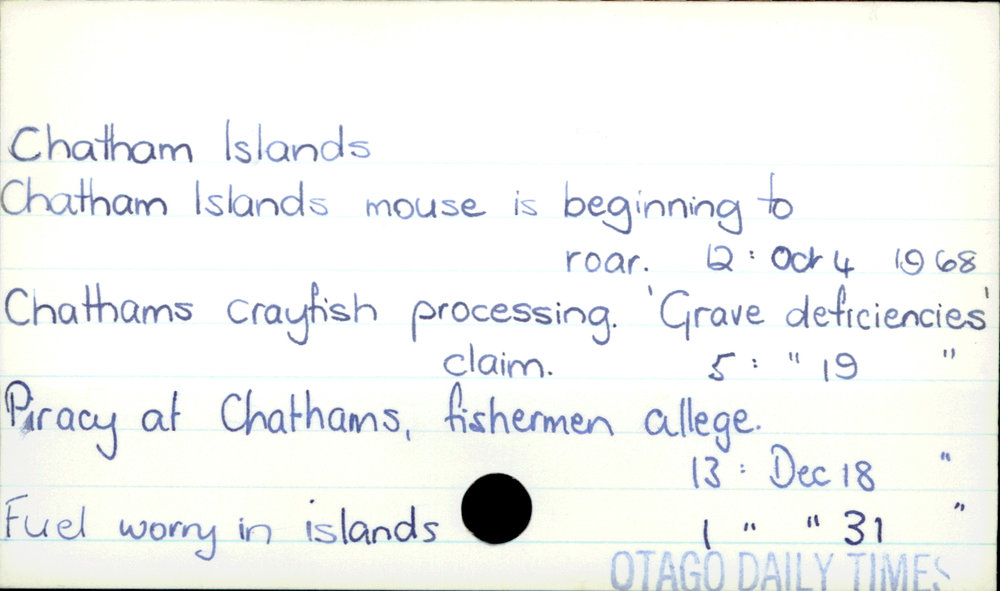 Chatham Islands
Chatham Islands mouse is beginning to
roar. 12 : Oct 4 1968
Chathams crayfish processing. 'Grave deficiencies'
claim. 5 : " 19 "
Piracy at Chathams, fishermen allege.
13 : Dec 18 "
Fuel worry in islands 1 " " 31 "
OTAGO DAILY TIMES